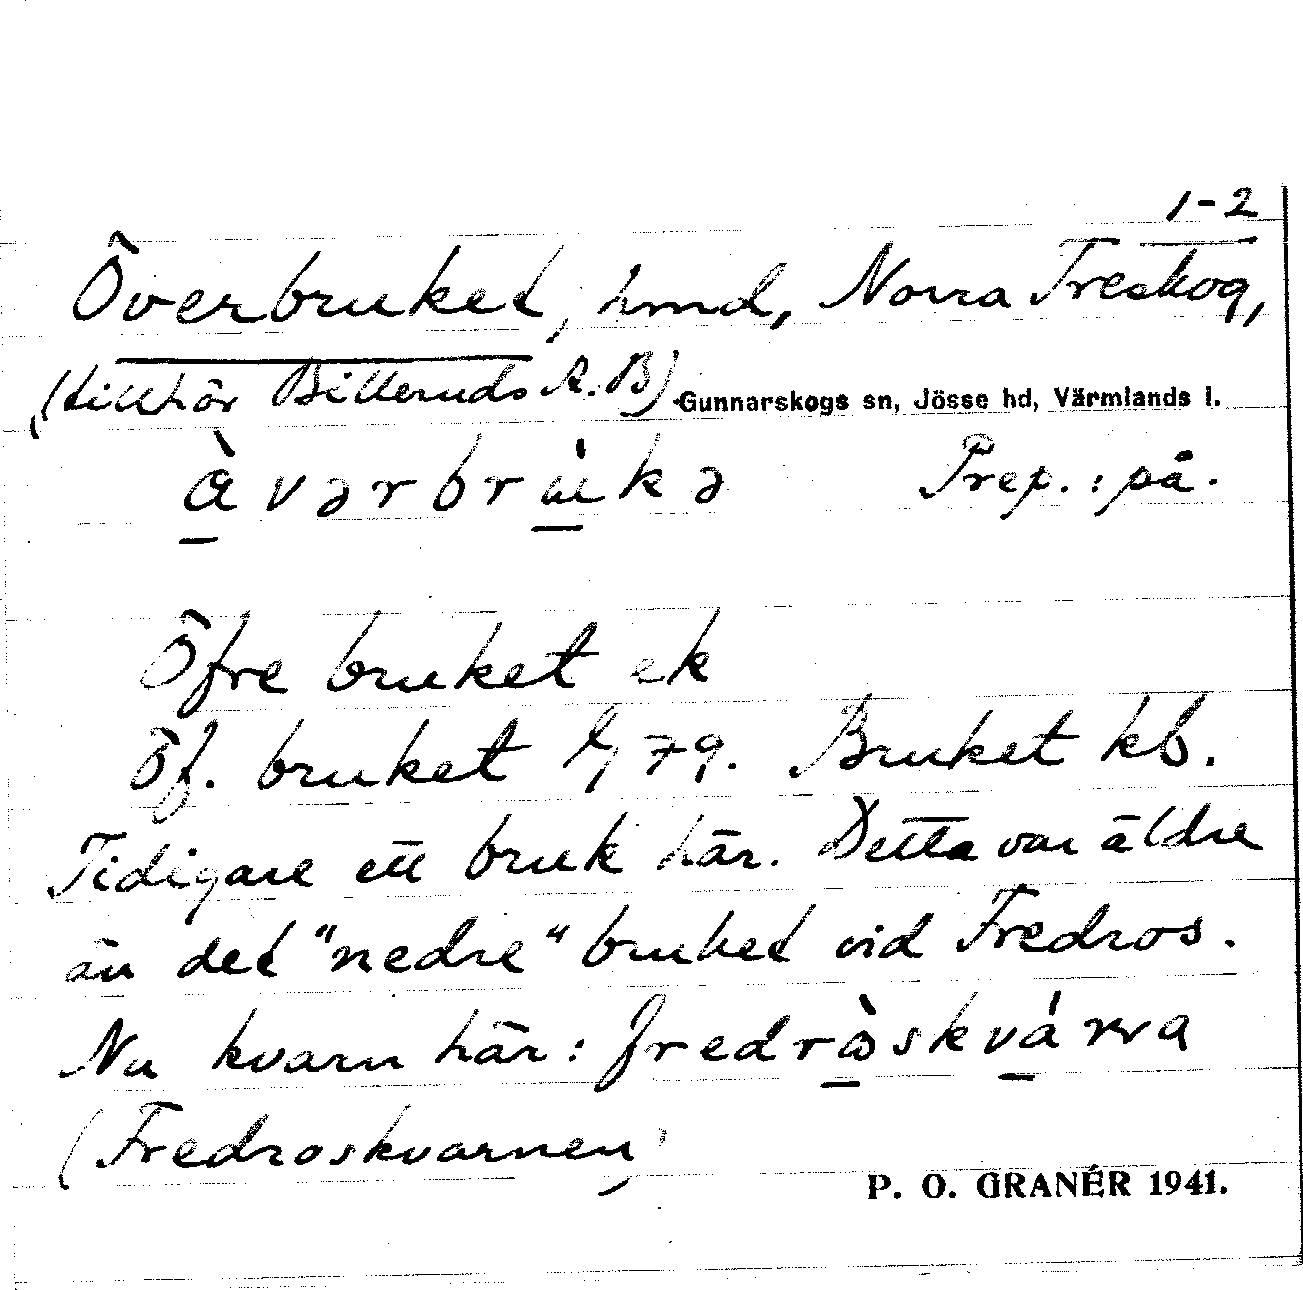 1-2
Överbruket, hmd, Norra Treskog,
(tillhör Billeruds A.B)
Gunnarskogs sn, Jösse hd, Värmlands l.
àvərbrúkə Prep.: på.
Öfre bruket ek
Öf. bruket 79. Bruket kb.
Tidigare ett bruk här. Detta var äldre
än det "nedre" bruket vid Fredros.
Nu kvarn här: fredròskvá
(Fredroskvarnen)
P. O. GRANÉR 1941.